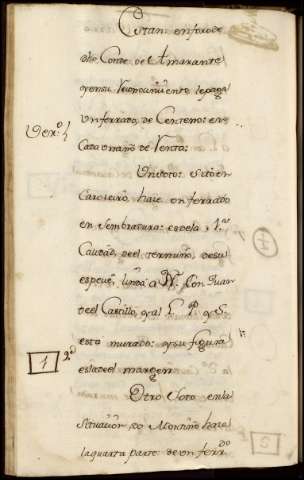 Estan en foro de
dho Conde de Amarante
y en su Reconocimiento le paga
un ferrado de Centeno: en
Cada un año de Renta:
Un Soto: Sito en
hace un ferrado
en Sembradura: es de la 1.ª
Calidad, de el termino, de su
espeue, linda a N. Con Juan
de el Castillo, y al L. P. y S.
esta murado: y su figura
es la de el margen
1 2ª
Otro Soto en la
Situacion do Montiño hace
la quarta parte de un ferrdo